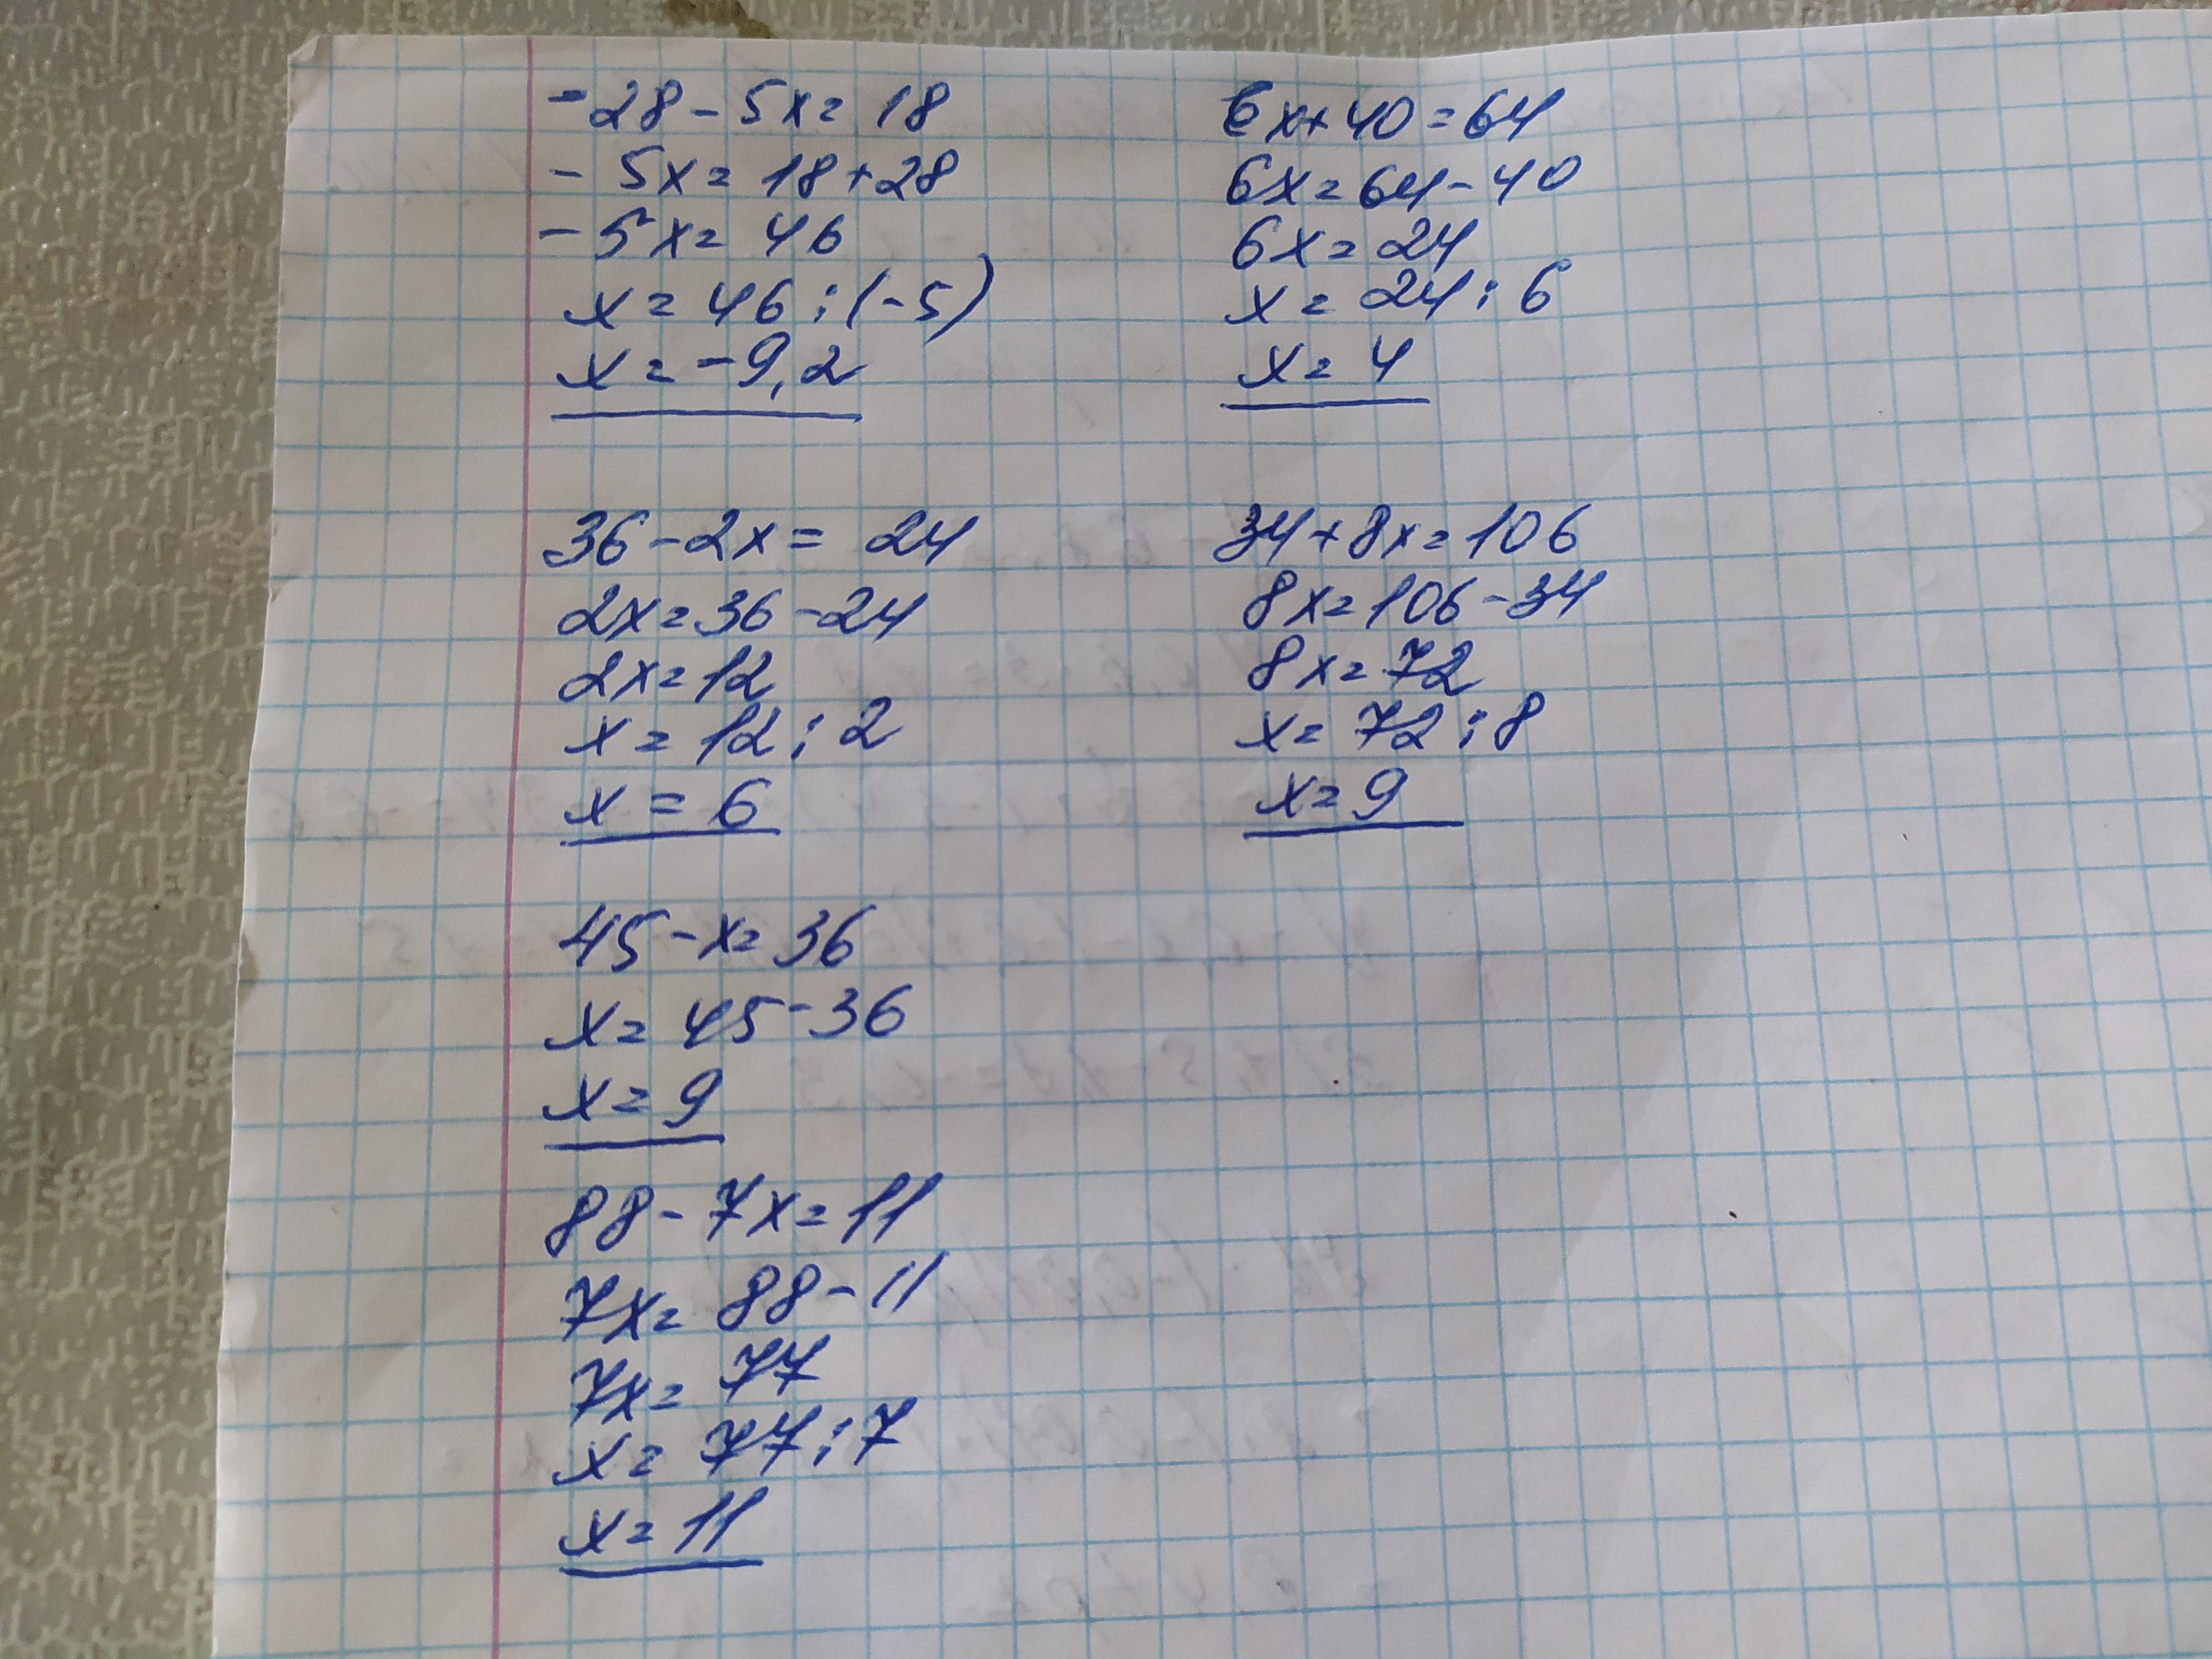 -28-5x=18
-5x=18+28
-5x=46
x=46:(-5)
x=-9,2
6x+40=64
6x=64-40
6x=24
x=24:6
x=4
36-2x=24
2x=36-24
2x=12
x=12:2
x=6
34+8x=106
8x=106-34
8x=72
x=72:8
x=9
45-x=36
x=45-36
x=9
88-7x=11
7x=88-11
7x=77
x=77:7
x=11